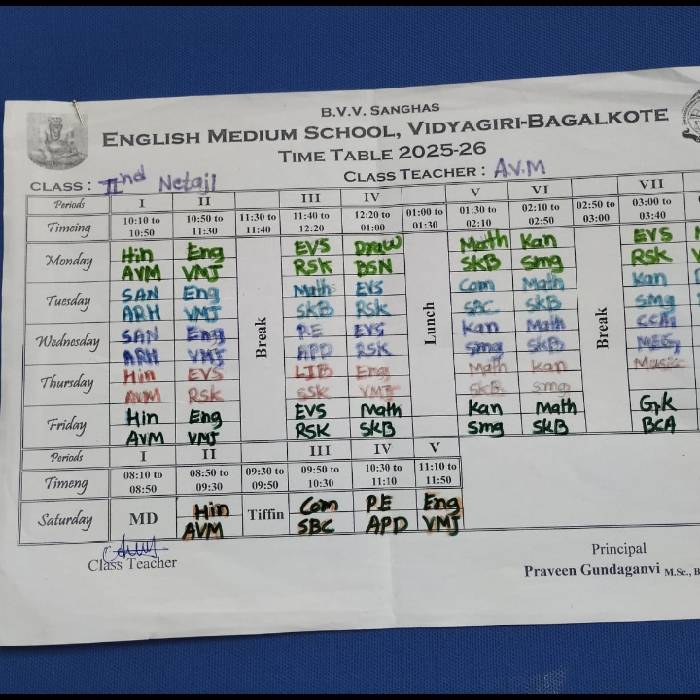 B.V.V. SANGHAS
ENGLISH MEDIUM SCHOOL, VIDYAGIRI-BAGALKOTE
TIME TABLE 2025-26
CLASS : IInd CLASS TEACHER : AV.M
Periods I II III IV V VI VII
Timeing 10:10 to 10:50 10:50 to 11:30 11:30 to 11:40 11:40 to 12:20 12:20 to 01:00 01:00 to 01:30 01:30 to 02:10 02:10 to 02:50 02:50 to 03:00 03:00 to 03:40
Monday Hin Eng EVS Draw Math Kan EVS
AVM VMJ RSK BSN SKB Smg RSK
Tuesday SAN Eng Math EVS Com Math Kan
ARH VMJ SKB RSK SBC SKB Smg
Break Lunch Break
Wednesday SAN Eng PE EVS Kan Math
ARH VMJ APD RSK Smg SKB
Thursday Hin EVS LIB Eng Math kan Music
AVM Rsk SSK VMJ SKB smg
Friday Hin Eng EVS Math Kan Math G.k
AVM VMJ RSK SKB Smg SKB BCA
Periods I II III IV V
Timeng 08:10 to 08:50 08:50 to 09:30 09:30 to 09:50 09:50 to 10:30 10:30 to 11:10 11:10 to 11:50
Saturday MD Hin Tiffin Com PE Eng
AVM SBC APD VMJ
Class Teacher
Principal
Praveen Gundaganvi M.Sc., B